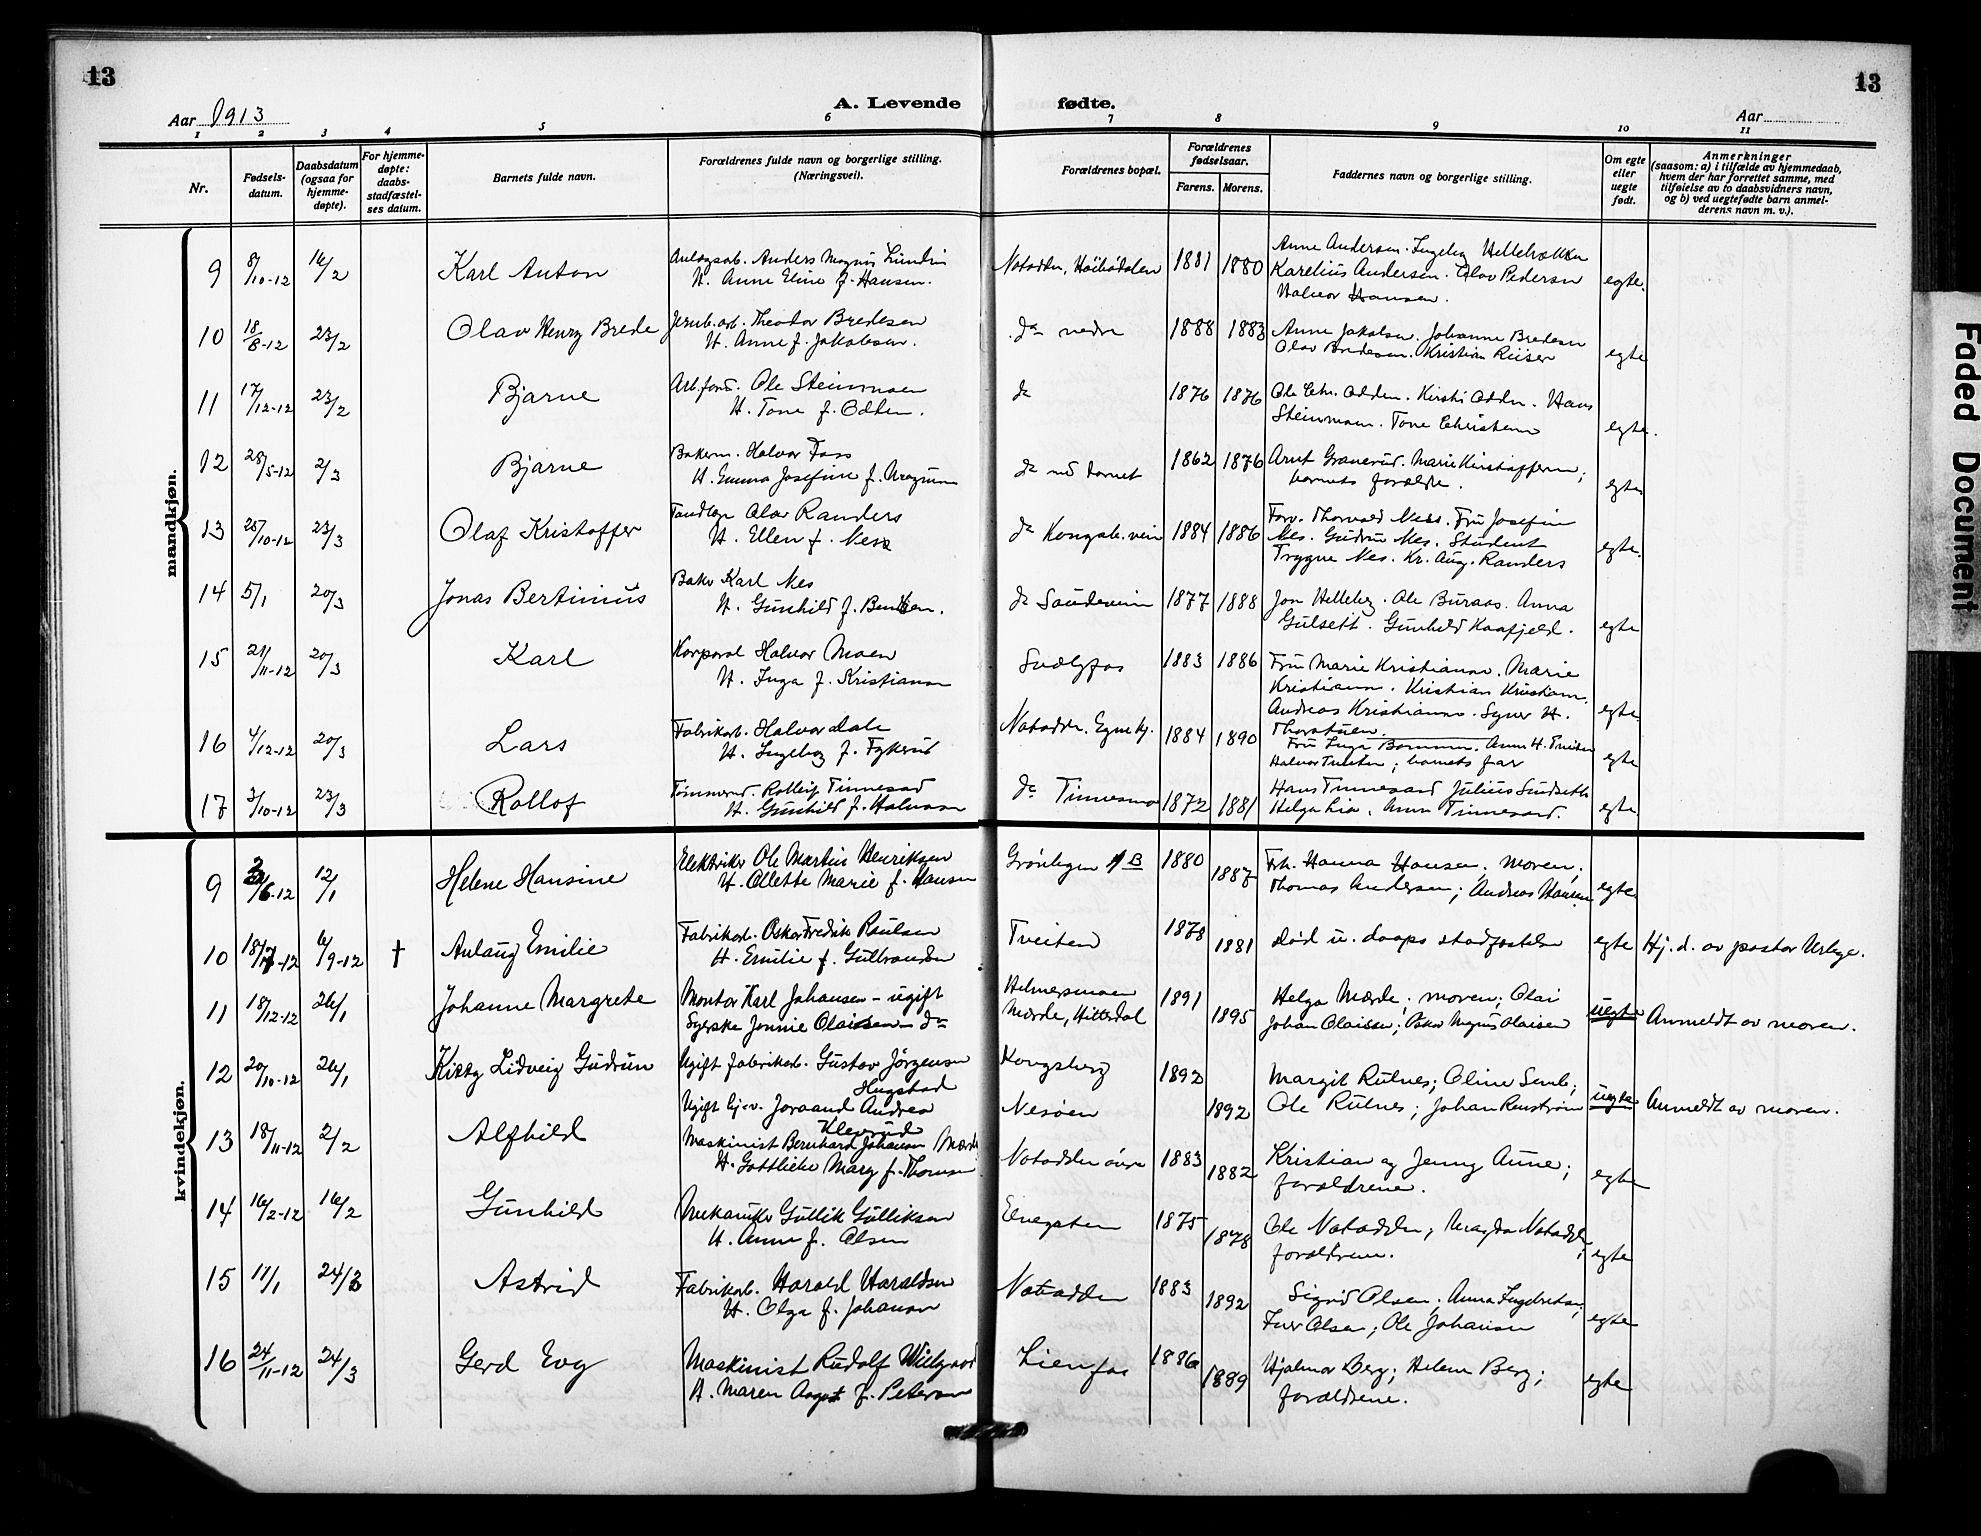 13
13
A. Levende fødte.
Aar 1913
Aar
1 2 3 4 5 6 7 8 9 10 11
Nr.
Fødsels-
datum.
Daabsdatum
(ogsaa for
hjemme-
døpte).
For hjemme-
døpte:
daabs-
stadfæstel-
ses datum.
Barnets fulde navn.
Forældrenes fulde navn og borgerlige stilling.
(Næringsvei).
Forældrenes bopæl.
Forældrenes
fødselsaar.
Farens. Morens.
Faddernes navn og borgerlige stilling.
Om egte
eller
uegte
født.
Anmerkninger
(saasom: a) i tilfælde av hjemmedaab,
hvem der har forrettet samme, med
tilføielse av to daabsvidners navn,
og b) ved uegtefødte barn anmel-
derens navn m. v.).
mandkjøn.
9 8/10-12 16/2 Karl Anton
Anlægsarb. Anders Magnus Lundin
H. Anne Eline f. Hansen.
Notodden, 1881 1880
Anne Andersen. Ingeborg
Karelius Andersen. Olav Pedersen
Halvor Hansen.
egte.
10 18/8-12 23/2 Olav Henry Brede
Jernb.arb. Theodor Bredesen
H. Anne f. Jakobsen.
do nedre 1888 1883
Anne Jakobsen. Johanne Bredesen
Olav Bredesen. Kristian Riiser
egte
11 17/12-12 23/2 Bjarne
Arb.form. Ole Steinmoen
H. Tone f. Odden.
do 1876 1876
Ole Chr. Odden. Kirsti Odden. Hans
Steinmoen. Tone
egte.
12 28/5-12 2/3 Bjarne
Bakerm. Halvor Foss
H. Emma Josefine f.
do 1862 1876
Arnt Granerud. Marie Kristoffersen;
barnets forældre.
egte
13 28/10-12 23/3 Olaf Kristoffer
Tandlæge Olav Randers
H. Ellen f. Ness
do Kongsb.vein 1884 1886
Forv. Thorvald Ness. Fru Josefine
Nes. Gudrun Nes. Student
Trygve Nes. Kr. Aug. Randers
egte.
14 5/1 20/3 Jonas Bertinius
Baker Karl Nes
H. Gunhild f. Bentsen.
do Saudeveien 1877 1888
Jon Helleberg. Ole Buraas. Anna
Gulsett. Gunhild Kaafjeld.
egte
15 21/11-12 20/3 Karl
Korporal Halvor Moen
H. Inga f. Kristiansen
Svælgfos 1883 1886
Fru Marie Kristiansen. Marie
Kristiansen. Kristian Kristiansen.
Andreas Kristiansen. Syver H.
Thorstuen.
egte
16 4/12-12 20/3 Lars
Fabrikarb. Halvor Dale
H. Ingeborg f. Fykerud
Notodden. 1884 1890
Fru Inga Bamme. Anne H. Tveiten
Halvor Tveiten; barnets far
egte
17 3/10-12 23/3 Rollof
Rolleif Tinnesand
H. Gunhild f. Halvorsen
do Tinnesmoen 1872 1881
Hans Tinnesand Julius Sundseth
Helga Lia. Anne Tinnesand.
egte
kvindekjøn.
9 3/6-12 12/1 Helene Hansine
Elektriker Ole Martin Henriksen
H. Ollette Marie f. Hansen
Grønbyen 1 B 1880 1887
Frk. Hanna Hansen; moren;
Thomas Andersen; Andreas Hansen
egte
10 18/7-12 6/9-12 † Aulaug Emilie
Fabrikarb. Oskar Fredrik Paulsen
H. Emilie f. Gulbrandsen
Tveiten 1878 1881
Død u. daaps stadfæstelse
egte Hj. d. av pastor Urbye.
11 18/12-12 26/1 Johanne Margrete
Montør Karl Johansen - ugift
Syerske Jonnie Olaisen - do
Helmersmoen
Mærde, Hitterdal
1891 1895
Helga Mærde; moren; Olai
Johan Olaisen; Oskar Magnus Olaisen
uegte Anmeldt av moren.
12 20/10-12 26/1 Kitty Lidveig Gudrun
Ugift fabrikarb. Gustav Jörgensen
Hugstad
Ugift tj.- Joraand Andrea
Klevrud
Kongsberg
Nesøen
1892 1892
Margit Rulnes; Oline Semb;
Ole Rulnes; Johan Renstrøm
uegte Anmeldt av moren.
13 18/11-12 2/2 Alfhild
Maskinist Bernhard Johansen Mærde
H. Gottliebe Mary f. Thomsen
Notodden øvre 1883 1882
Kristian og Jenny Aune;
forældrene.
egte
14 16/2-12 16/2 Gunhild
Mekaniker Gullik Gulliksen
H. Anne f. Olsen
Elvegaten 1875 1878
Ole Notodden; Magda Notodden;
forældrene.
egte
15 11/1 24/3 Astrid
Fabrikarb. Harald Haraldsen
H. Olga f. Johansen
Notodden 1883 1892
Sigrid Olsen; Anna Ingebretsen;
Iver Olsen; Ole Johansen
egte
16 24/11-12 24/3 Gerd Evy
Maskinist Rudolf
H. Maren Aagot f. Petersen
Lienfos 1886 1889
Hjalmar Berg; Helene Berg;
forældrene.
egte
Faded Document